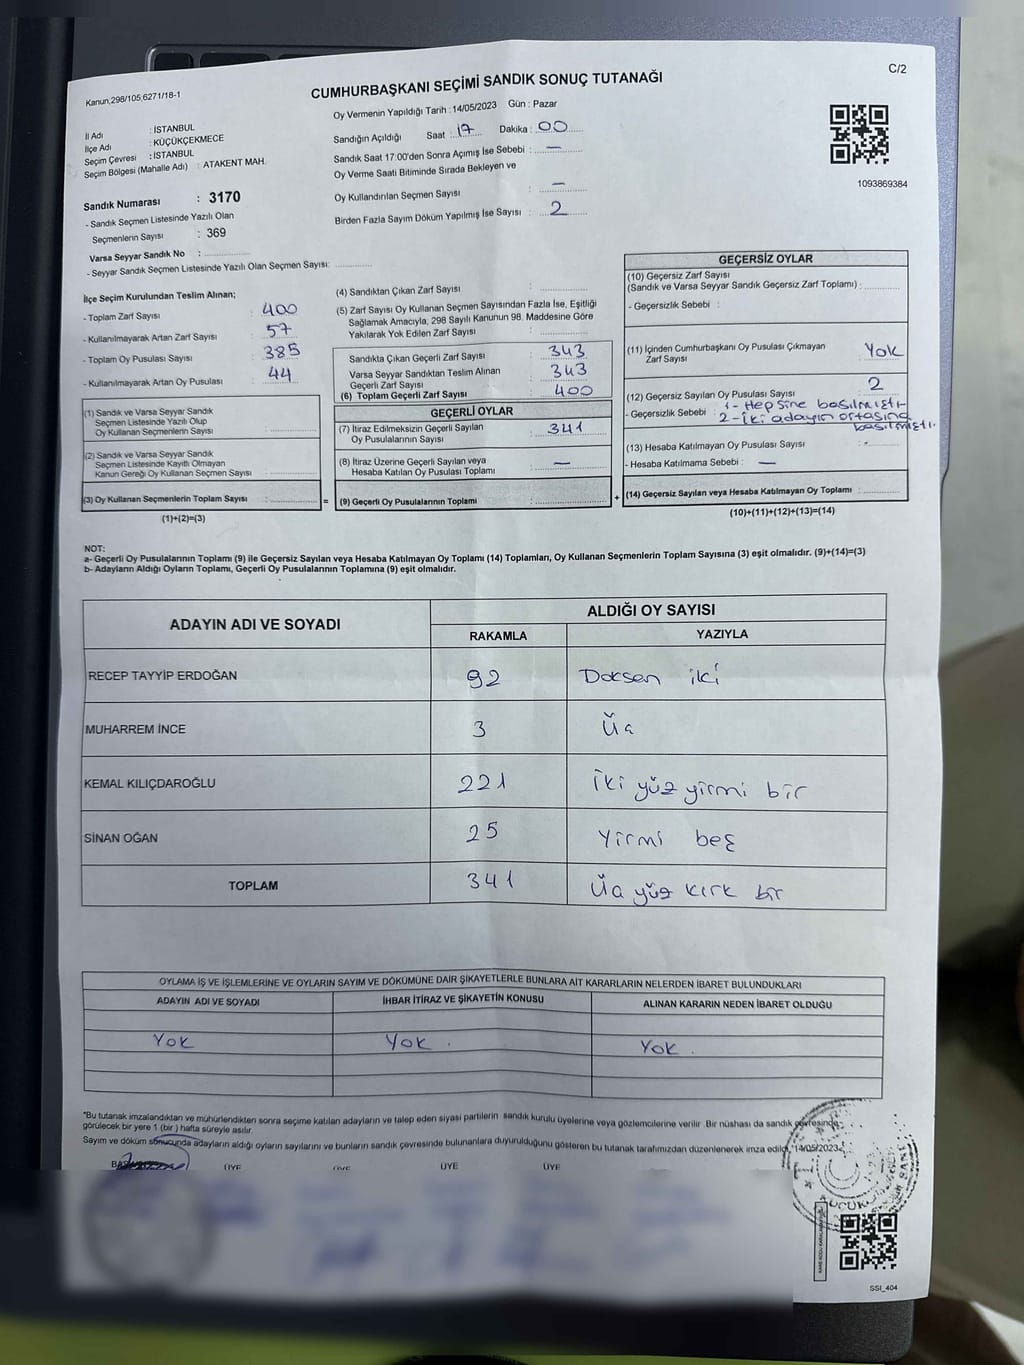 Kanun,298/105,6271/18-1
CUMHURBAŞKANI SEÇİMİ SANDIK SONUÇ TUTANAĞI
C/2
İl Adı : İSTANBUL
İlçe Adı : KÜÇÜKÇEKMECE
Seçim Çevresi : İSTANBUL
Seçim Bölgesi (Mahalle Adı) : ATAKENT MAH.
Sandık Numarası : 3170
- Sandık Seçmen Listesinde Yazılı Olan
Seçmenlerin Sayısı : 369
Varsa Seyyar Sandık No :
- Seyyar Sandık Seçmen Listesinde Yazılı Olan Seçmen Sayısı:
Oy Vermenin Yapıldığı Tarih : 14/05/2023 Gün : Pazar
Sandığın Açıldığı Saat : 17 Dakika : 00
Sandık Saat 17:00'den Sonra Açımış İse Sebebi : —
Oy Verme Saati Bitiminde Sırada Bekleyen ve
Oy Kullandırılan Seçmen Sayısı : —
Birden Fazla Sayım Döküm Yapılmış İse Sayısı : 2
1093869384
İlçe Seçim Kurulundan Teslim Alınan;
- Toplam Zarf Sayısı : 400
- Kullanılmayarak Artan Zarf Sayısı : 57
- Toplam Oy Pusulası Sayısı : 385
- Kullanılmayarak Artan Oy Pusulası : 44
(1) Sandık ve Varsa Seyyar Sandık
Seçmen Listesinde Yazılı Olup
Oy Kullanan Seçmenlerin Sayısı :
(2) Sandık ve Varsa Seyyar Sandık
Seçmen Listesinde Kayıtlı Olmayan
Kanun Gereği Oy Kullanan Seçmen Sayısı :
(3) Oy Kullanan Seçmenlerin Toplam Sayısı : =
(1)+(2)=(3)
(4) Sandıktan Çıkan Zarf Sayısı :
(5) Zarf Sayısı Oy Kullanan Seçmen Sayısından Fazla İse, Eşitliği
Sağlamak Amacıyla, 298 Sayılı Kanunun 98. Maddesine Göre
Yakılarak Yok Edilen Zarf Sayısı :
Sandıkta Çıkan Geçerli Zarf Sayısı : 343
Varsa Seyyar Sandıktan Teslim Alınan
Geçerli Zarf Sayısı : 343
(6) Toplam Geçerli Zarf Sayısı : 400
GEÇERLİ OYLAR
(7) İtiraz Edilmeksizin Geçerli Sayılan
Oy Pusulalarının Sayısı : 341
(8) İtiraz Üzerine Geçerli Sayılan veya
Hesaba Katılan Oy Pusulası Toplamı : —
(9) Geçerli Oy Pusulalarının Toplamı : +
GEÇERSİZ OYLAR
(10) Geçersiz Zarf Sayısı
(Sandık ve Varsa Seyyar Sandık Geçersiz Zarf Toplamı) :
- Geçersizlik Sebebi :
(11) İçinden Cumhurbaşkanı Oy Pusulası Çıkmayan
Zarf Sayısı : Yok
(12) Geçersiz Sayılan Oy Pusulası Sayısı : 2
- Geçersizlik Sebebi : 1- Hepsine basılmıştı
2- İki adayın ortasına
basılmıştı.
(13) Hesaba Katılmayan Oy Pusulası Sayısı : -
- Hesaba Katılmama Sebebi : —
(14) Geçersiz Sayılan veya Hesaba Katılmayan Oy Toplamı :
(10)+(11)+(12)+(13)=(14)
NOT:
a- Geçerli Oy Pusulalarının Toplamı (9) ile Geçersiz Sayılan veya Hesaba Katılmayan Oy Toplamı (14) Toplamları, Oy Kullanan Seçmenlerin Toplam Sayısına (3) eşit olmalıdır. (9)+(14)=(3)
b- Adayların Aldığı Oyların Toplamı, Geçerli Oy Pusulalarının Toplamına (9) eşit olmalıdır.
ADAYIN ADI VE SOYADI
ALDIĞI OY SAYISI
RAKAMLA YAZIYLA
RECEP TAYYİP ERDOĞAN 92 Doksan iki
MUHARREM İNCE 3 Üç
KEMAL KILIÇDAROĞLU 221 İki yüz yirmi bir
SİNAN OĞAN 25 Yirmi beş
TOPLAM 341 Üç yüz kırk bir
OYLAMA İŞ VE İŞLEMLERİNE VE OYLARIN SAYIM VE DÖKÜMÜNE DAİR ŞİKAYETLERLE BUNLARA AİT KARARLARIN NELERDEN İBARET BULUNDUKLARI
ADAYIN ADI VE SOYADI İHBAR İTİRAZ VE ŞİKAYETİN KONUSU ALINAN KARARIN NEDEN İBARET OLDUĞU
Yok Yok . Yok .
"Bu tutanak imzalandıktan ve mühürlendikten sonra seçime katılan adayların ve talep eden siyasi partilerin sandık kurulu üyelerine veya gözlemcilerine verilir. Bir nüshası da sandık çevresinde
görülecek bir yere 1 (bir ) hafta süreyle asılır.
Sayım ve döküm sonucunda adayların aldığı oyların sayılarını ve bunların sandık çevresinde bulunanlara duyurulduğunu gösteren bu tutanak tarafımızdan düzenlenerek imza edildi. 14/05/2023
ÜYE ÜYE ÜYE ÜYE
SSI_404